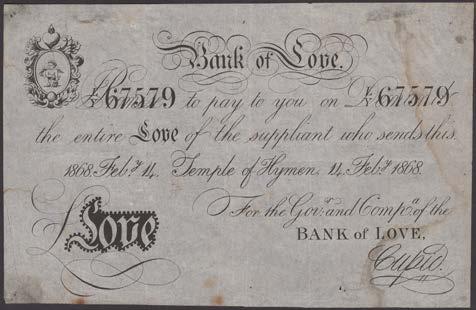 Bank of Love.
I Promise to pay to you on Demand
№ 67579 № 67579
the entire Love of the suppliant who sends this
1868. Feb.y 14. Temple of Hymen. 14. Feb.y 1868.
For the Gov.r and Comp.a of the
£ Love
BANK of LOVE,
Cupid.